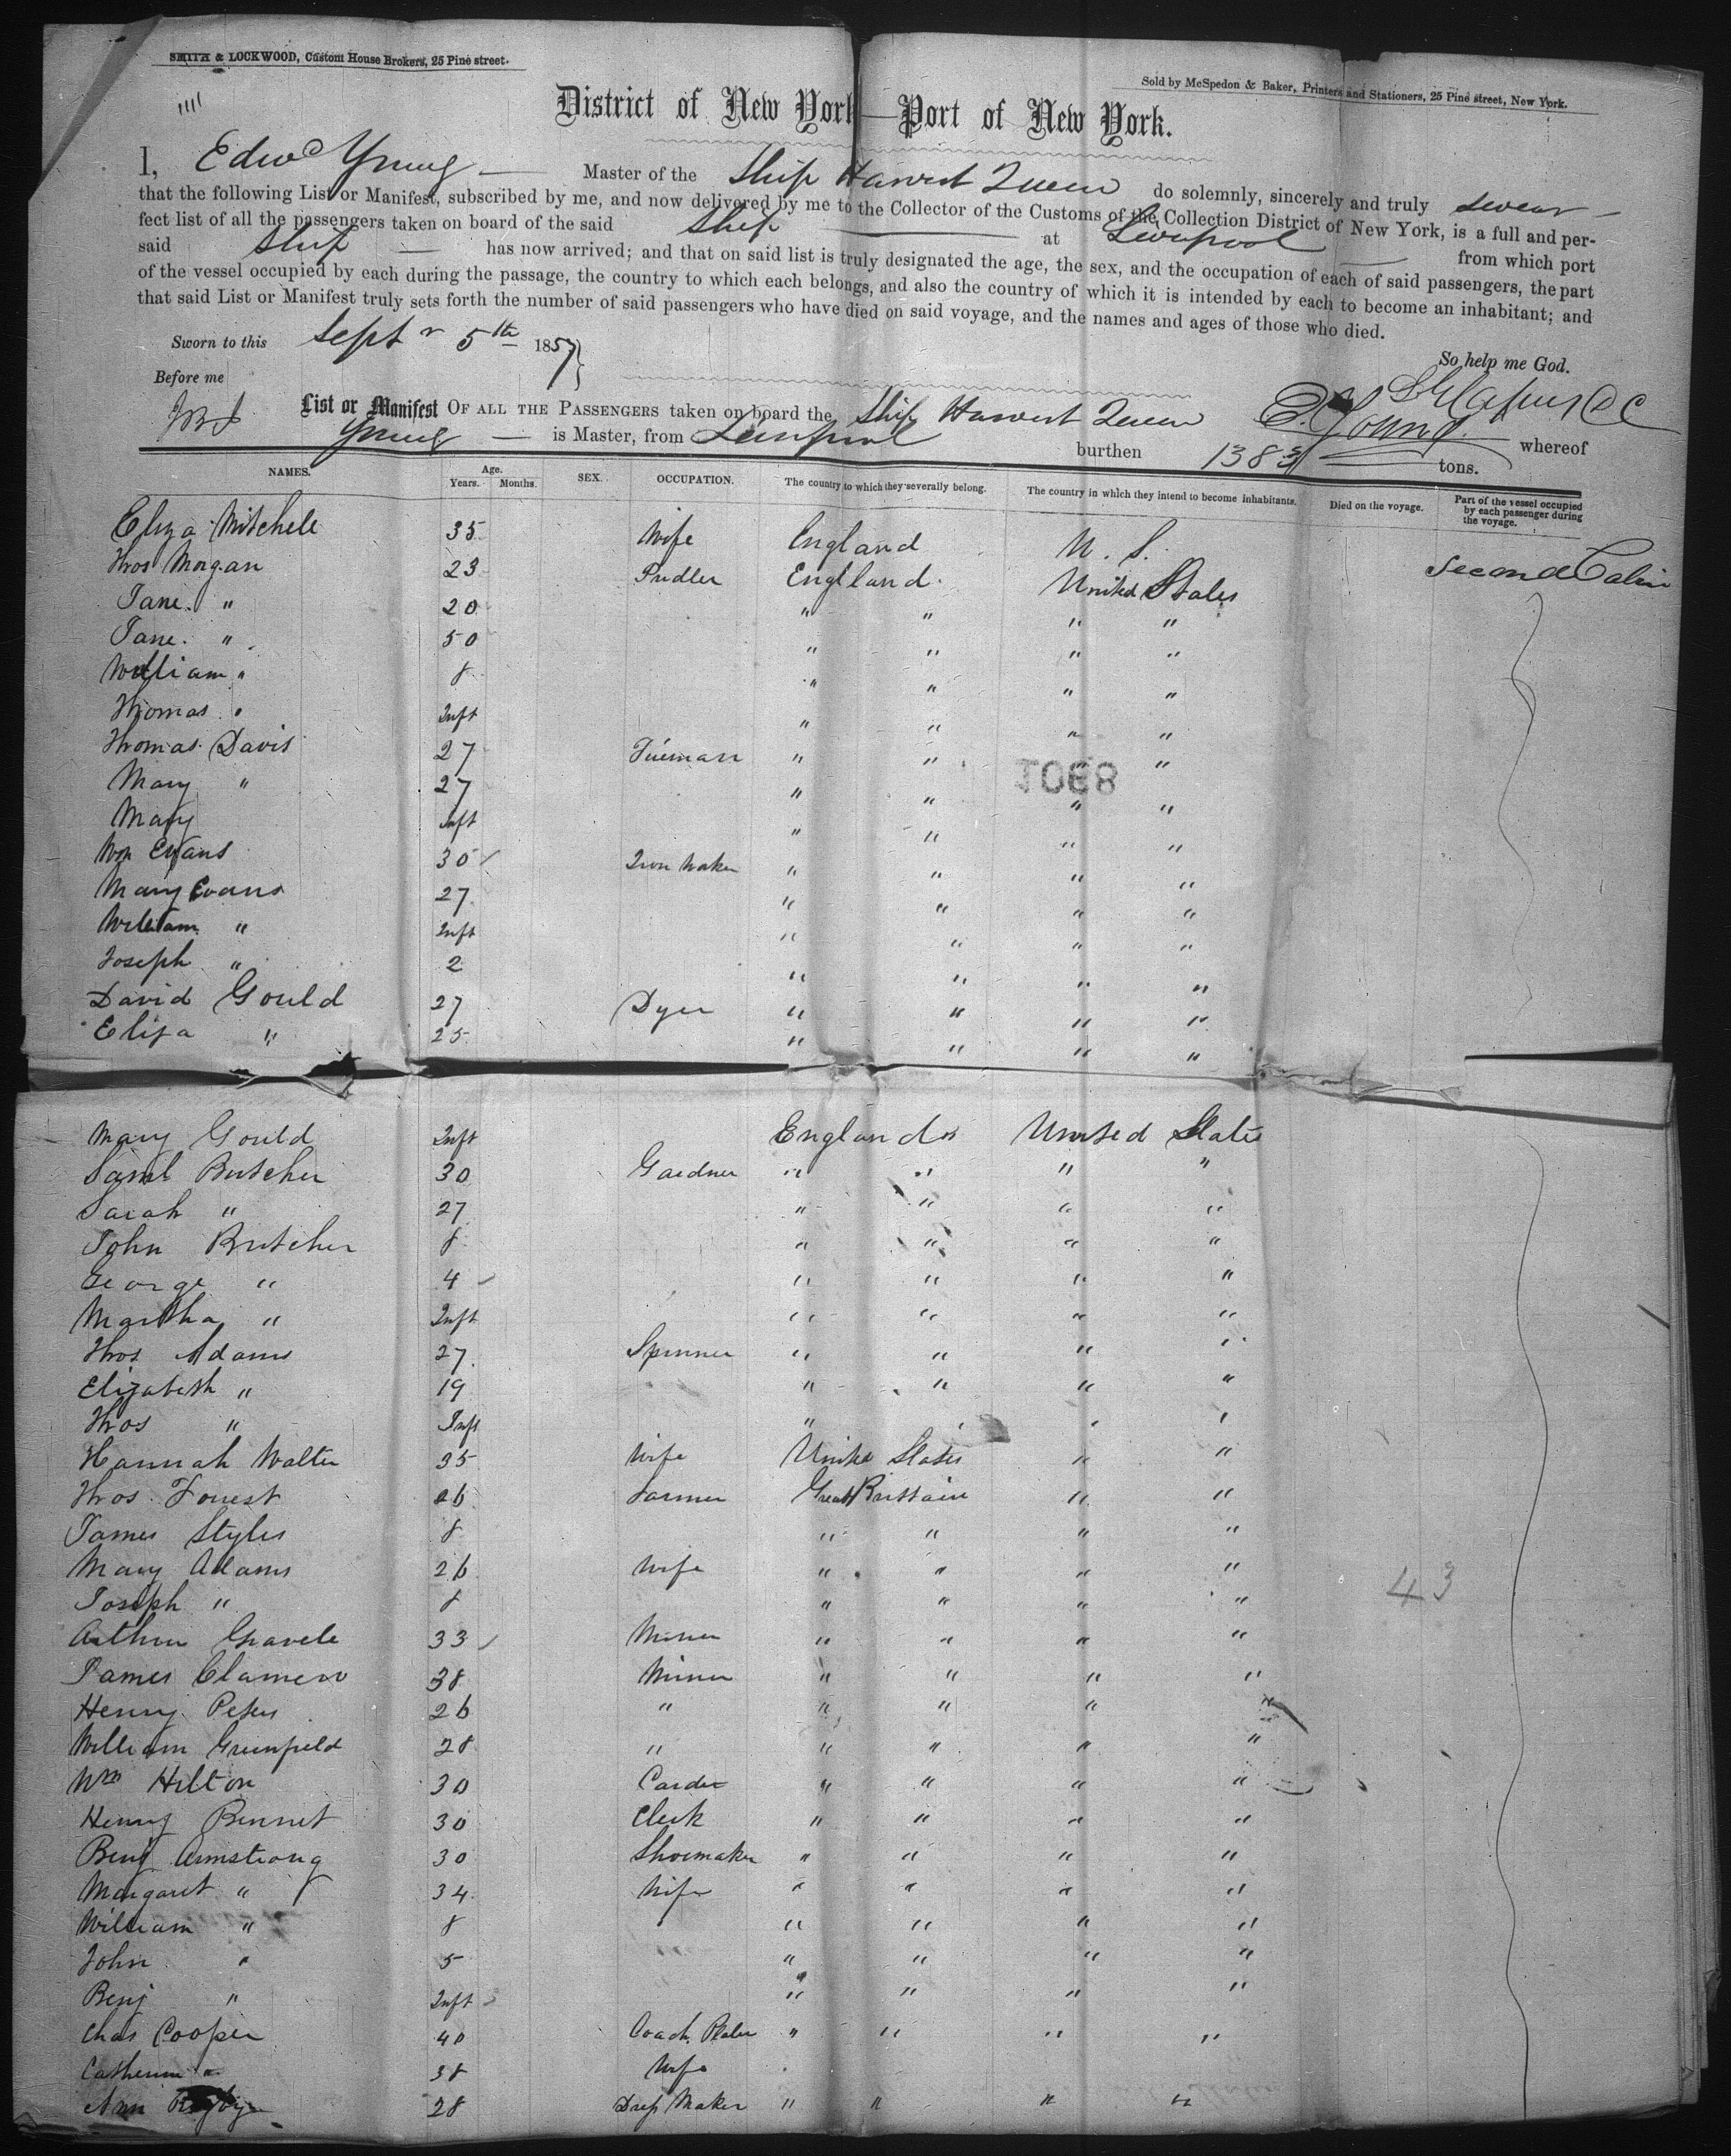 SMITH & LOCKWOOD, Custom House Brokers, 25 Pine street.
Sold by McSpedon & Baker, Printers and Stationers, 25 Pine street, New York.
District of New York—Port of New York.
I, Edwd Young Master of the Ship Harvest Queen do solemnly, sincerely and truly swear
that the following List or Manifest, subscribed by me, and now delivered by me to the Collector of the Customs of the Collection District of New York, is a full and per-
fect list of all the passengers taken on board of the said Ship at Liverpool from which port
said Ship has now arrived; and that on said list is truly designated the age, the sex, and the occupation of each of said passengers, the part
of the vessel occupied by each during the passage, the country to which each belongs, and also the country of which it is intended by each to become an inhabitant; and
that said List or Manifest truly sets forth the number of said passengers who have died on said voyage, and the names and ages of those who died.
Sworn to this Septr 5th 1857
So help me God.
Before me
E. Young
List or Manifest OF ALL THE PASSENGERS taken on board the Ship Harvest Queen whereof
Young is Master, from Liverpool burthen 1383 tons.
NAMES. Age. Years. Months. SEX. OCCUPATION. The country to which they severally belong. The country in which they intend to become inhabitants. Died on the voyage. Part of the vessel occupied by each passenger during the voyage.
Eliza Mitchell 35 Wife England U. S.
Thos Morgan 23 Pudler Englland United States Second Cabin
Jane " 20 " " " "
Jane " 50 " " " "
William " 8 " " " "
Thomas " Inft " " " "
Thomas Davis 27 Fireman " " " "
1068
Mary " 27 " " " "
Mary Inft " " " "
Wm Evans 30 Iron Maker " " " "
Mary Evans 27 " " " "
William " Inft " " " "
Joseph " 2 " " " "
David Gould 27 Dyer " " " "
Eliza " 25 " " " "
Mary Gould Inft England United States
Saml Butcher 30 Gardner " " " "
Sarah " 27 " " " "
John Butcher 8 " " " "
George " 4 " " " "
Martha " Inft " " " "
Thos Adams 27 Spinner " " " "
Elizabeth " 19 " " " "
Thos " Inft " " " "
Hannah Walter 35 Wife United States " "
Thos Forrest 26 Farmer Great Brittain " "
James Styles 8 " " " "
Mary Adams 26 Wife " " " "
Joseph " 8 " " " "
43
Arthur Gravele 33 Miner " " " "
James 38 Miner " " " "
Henry Peters 26 " " " " "
William Greenfield 28 " " " " "
Wm Hilton 30 Carder " " " "
Henry Bennet 30 Clerk " " " "
Benj Armstrong 30 Shoemaker " " " "
Margaret " 34 Wife " " " "
William " 8 " " " "
John " 5 " " " "
Benj " Inft " " " "
Chas Cooper 40 Coach " " " "
Catherine " 38 Wife
Ann 28 Dress Maker " " " "